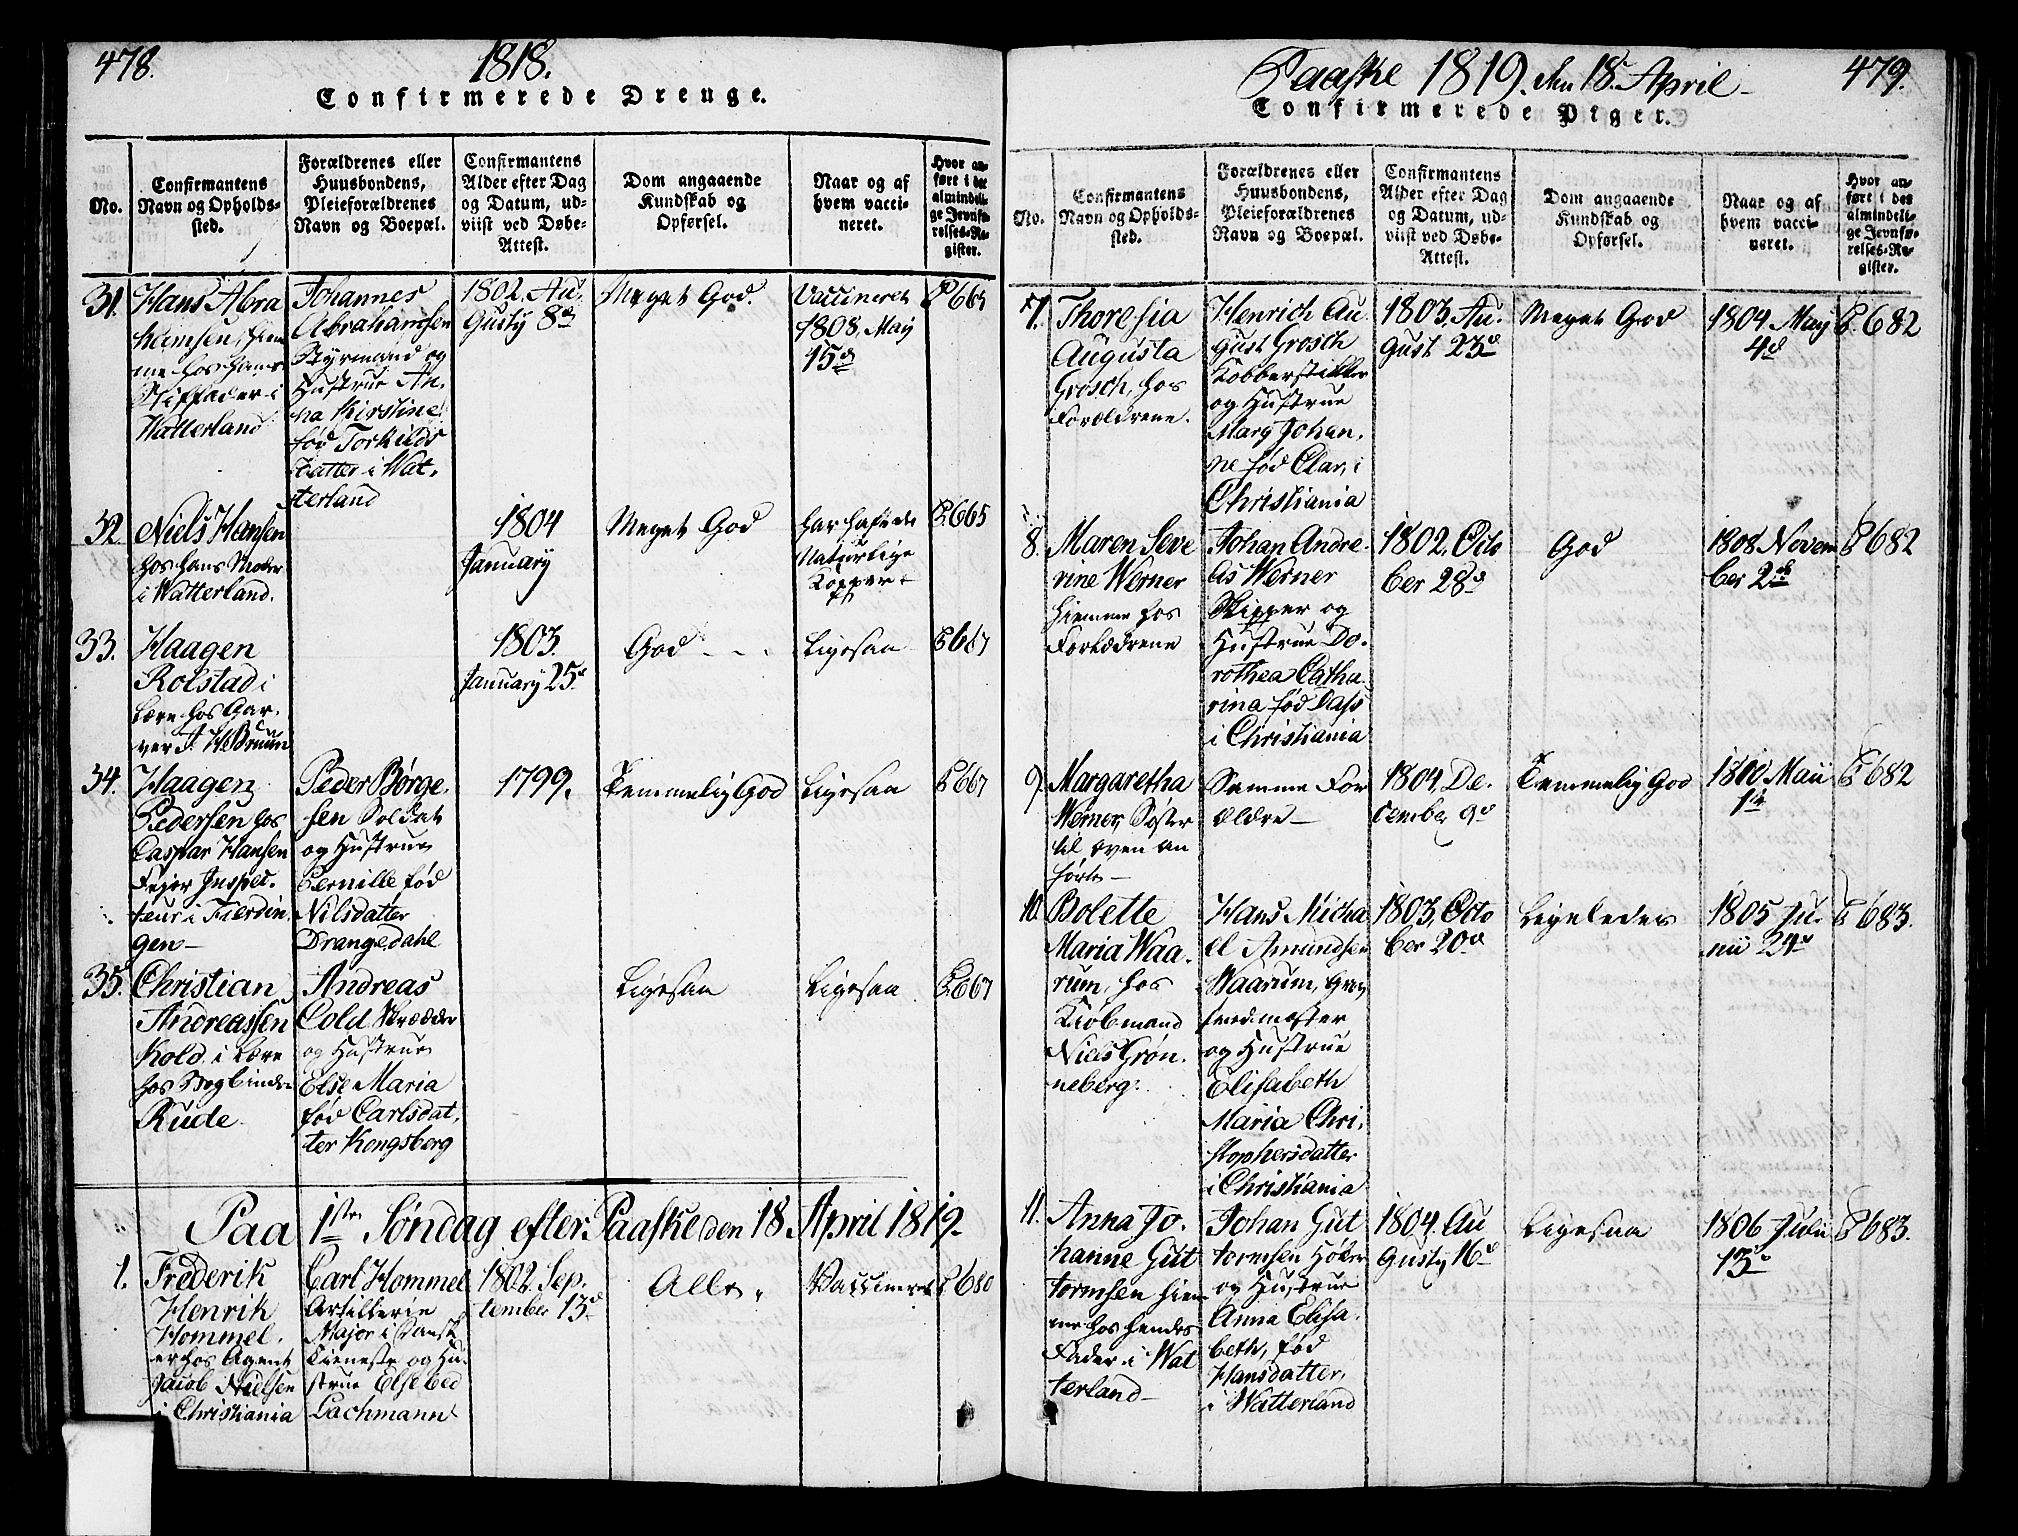 478.
1818.
Confirmerede Drenge.
No.
Confirmantens
Navn og Opholds-
sted.
Forældrenes eller
Huusbondens,
Pleieforældrenes
Navn og Boepæl.
Confirmantens
Alder efter Dag
og Datum, ud-
viist ved Døbe-
Attest.
Dom angaaende
Kundskab og
Opførsel.
Naar og af
hvem vacci-
neret.
Hvor an-
ført i det
almindeli-
ge Jevnfø-
relses-Re-
gister.
31.
Hans Abra
hamsen, hiem
me hos hans
Stiffader i
Watterland
Johannes
Abrahamsen
Styrmand og
Hustrue An,
na Kirstine
fød Torkilds
Datter i Wat,
terland
1802. Au,
Gusty 8d
Meget God.
Vaccineret
1808, May
15d
P 665
32
Niels Hansen
hos hans Moder
i Watterland.
1804
January
Meget God
har hafde
Naturlige
Kopper
P.665
33.
Haagen
Rolstad i
Lære hos Gar,
ver J. H. Bruun
1803.
January 25d
God - - -
Ligesaa
P 667
34.
Haagen
Pedersen hos
Caspar Hansen
Fejer Inspec,
teur i Fierdin,
gen-
Peder Børge,
sen Soldat
og Hustrue
Pernille fød
Nilsdatter
Drangedahl
1799.
Temmelig God
Ligesaa
P 667
35.
Christian
Andreassen
Kold i Lære
hos Bogbinder
Rude.
Andreas
Cold Skrædder
og Hustrue
Else Maria
fød Carlsdat,
ter Kongsberg
Ligesaa
Ligesaa
P.667
Paa 1ste Søndag efter Paaske den 18 April 1819.
1.
Frederik
Henrik
Hommel.
er hos Agent
Jacob Nielsen
i Christiania
Carl Hommel
Artillerie
Major i Dansk
Tieneste og Hu,
strue Elsebed
Lachmann
1802. Sep,
tember 13d
Alle,
Vaccineret
P 680
Paaske 1819. den 18. April-
479.
Confirmerede Piger.
No.
Confirmantens
Navn og Opholds-
sted.
Forældrenes eller
Huusbondens,
Pleieforældrenes
Navn og Boepæl.
Confirmantens
Alder efter Dag
og Datum, ud-
viist ved Døbe-
Attest.
Dom angaaende
Kundskab og
Opførsel.
Naar og af
hvem vacci-
neret.
Hvor an-
ført i det
almindeli-
ge Jevnfø-
relses-Re-
gister.
7.
Thoresia
Augusta
Grosch, hos
Forældrene.
Henrich Au,
gust Grosch
Kobberstikker
og Hustrue
Marg Johan,
ne fød Clar, i
Christiania
1803. Au,
Gust 23d
Meget God
1804 May
4d
P. 682
8.
Maren Seve
rine Werner
hiemme hos
Forældrene
Johan Andre,
as Werner
Skipper og
Hustrue Do,
rothea Catha,
rina fød Dass
i Christiania
1802. Octo
ber 28d
God
1808 Novem
ber 2d
P 682
9
Margaretha
Werner Søster
til oven an
førte-
Samme For
ældre-
1804. De,
cember 9d
Temmelig God
1810 Maii
1d
P 682
10.
Bolette
Maria Waa,
rum, hos
Kiøbmand
Niels Grøn,
neberg.
Hans Micha
el Amundsen
Waarum,
og Hustrue
Elisabeth
Maria Chri,
stophersdatter
i Christiania
1803, Octo
ber 20d
Ligeledes
1805 Ju,
nii 24d
P 683.
11.
Anna Jo,
hanne Gut
tormsen hiem
me hos hendes
Fader i Wat
terland-
Johan Gut
tormsen Høker
og Hustrue
Anna Elisa,
beth, fød
Hansdatter,
i Watterland
1804. Au
Gusty 16d
Ligesaa
1806 Julii
13d
P 683.